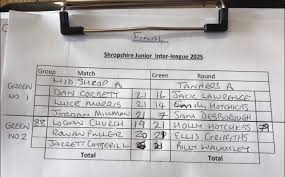 FINAL
Shropshire Junior Inter-league 2025
Group Match Green Round
MID SHROP A TANNERS A
GREEN NO 1
DAN CORBETT 21 16 JACK LAWRENCE
LUKE MORRIS 21 14 EMILY HOTCHKISS
JORDAN 21 7 SAM DESBOROUGH
GREEN NO 2
88 LOGAN CHURCH 19 21 HOLLY HOTCHKISS 79
ROWAN FULLER 20 21 ELLIS GRIFFITHS
JARRETT COTTERILL 21 BILLY WALMSLEY
Total Total